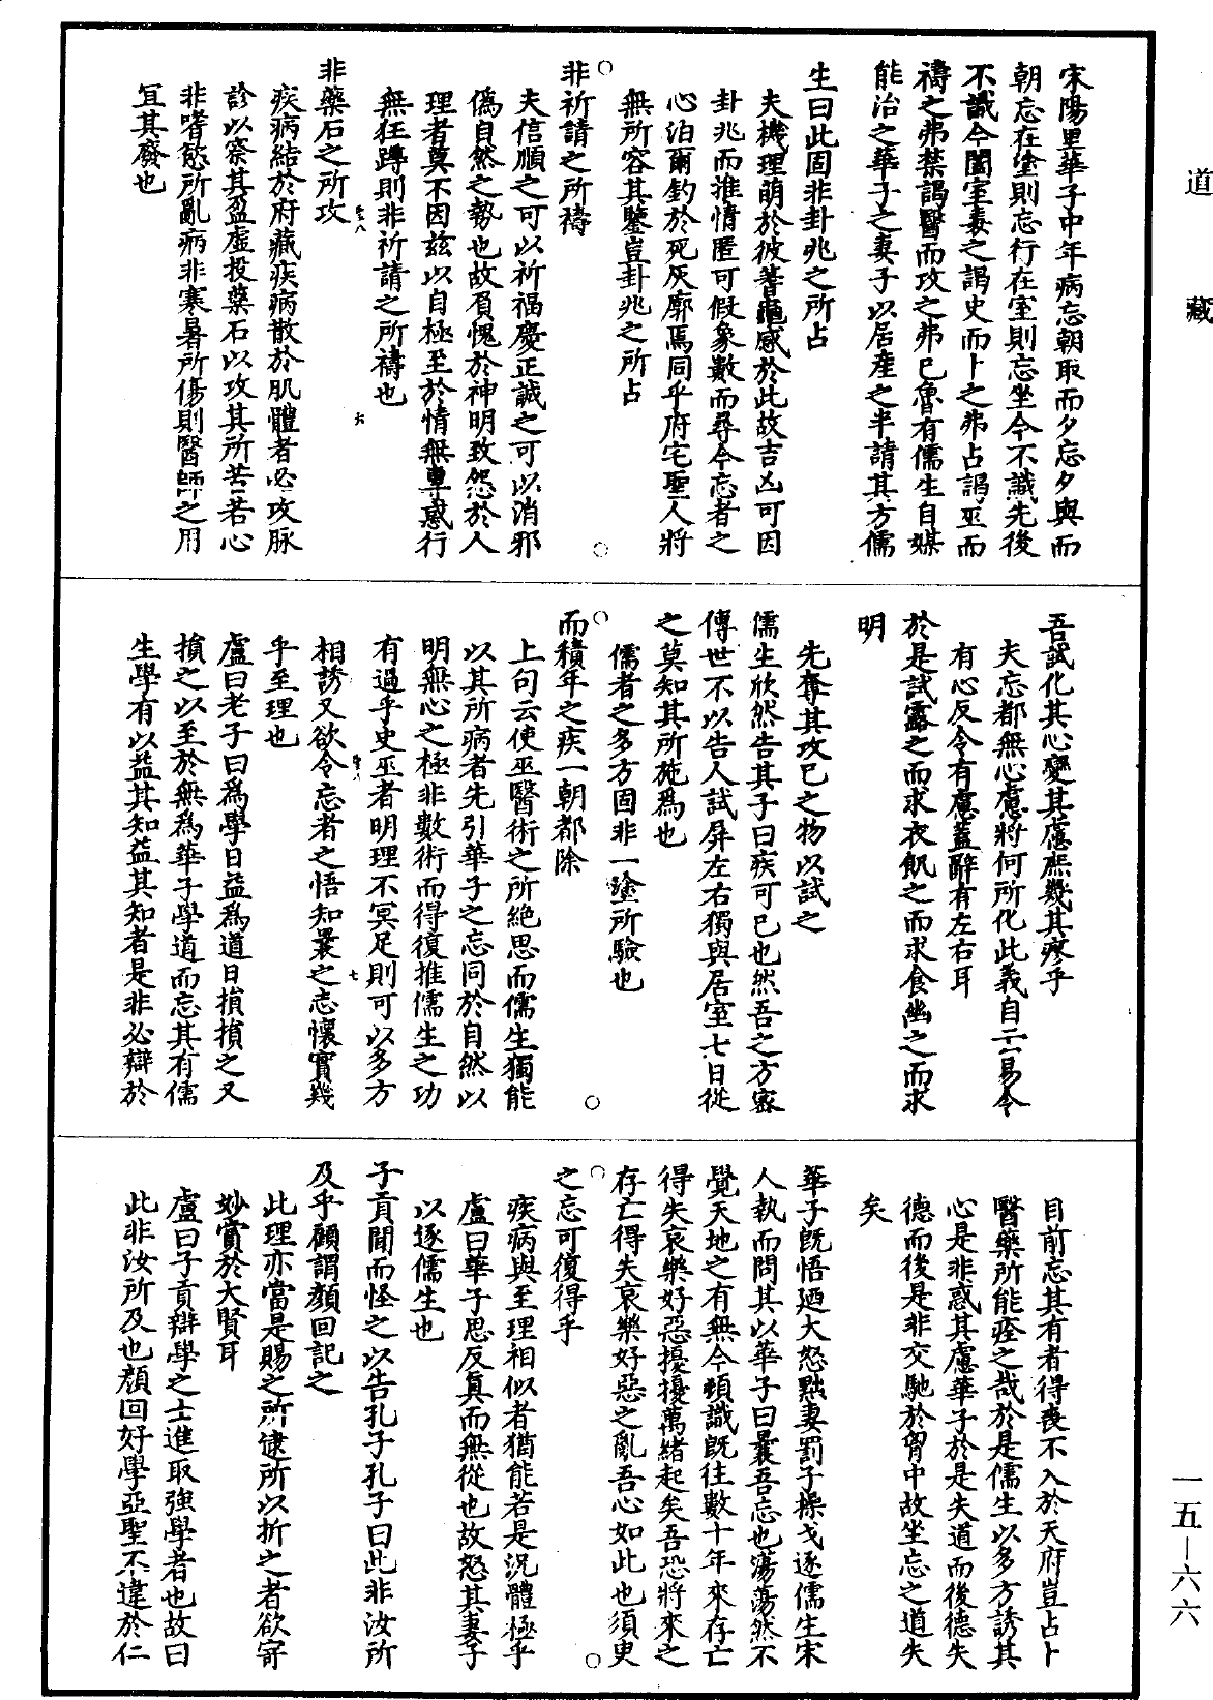 道藏
宋陽里華子中年病忘朝取而夕忘夕與而
朝忘在塗則忘行在室則忘坐今不識先後
不識今闔室毒之謁史而卜之弗占謁巫而
禱之弗禁謁醫而攻之弗已魯有儒生自媒
能治之華子之妻子以居產之半請其方儒
生曰此固非卦兆之所占
夫機理萌於彼蓍龜感於此故吉凶可因
卦兆而推情匿可假象數而尋今忘者之
心泊爾鈞於死灰廓焉同乎府宅聖人將
無所容其鑒豈卦兆之所占
非祈請之所禱
夫信順之可以祈福慶正誠之可以消邪
偽自然之勢也故負愧於神明致怨於人
理者莫不因茲以自極至於情無專惑行
無狂躑則非祈請之所禱也
非藥石之所攻
疾病結於府藏疾病散於肌體者必攻脉
診以察其盈虛投藥石以攻其所苦若心
非嗜慾所亂病非寒暑所傷則醫師之用
宜其廢也
吾試化其心變其慮庶幾其瘳乎
夫忘都無心慮將何所化此義自云易令
有心反令有慮蓋辭有左右耳
於是試露之而求衣飢之而求食幽之而求
明
先奪其攻已之物以試之
儒生欣然告其子曰疾可已也然吾之方密
傳世不以告人試屏左右獨與居室七日從
之莫知其所施爲也
儒者之多方固非一塗所驗也
而積年之疾一朝都除
上句云使巫醫術之所絶思而儒生獨能
以其所病者先引華子之忘同於自然以
明無心之極非數術而得復推儒生之功
有過乎史巫者明理不冥足則可以多方
相誘又欲令忘者之悟知曩之忘懷實幾
乎至理也
盧曰老子曰爲學日益爲道日損損之又
損之以至於無爲華子學道而忘其有儒
生學有以益其知益其知者是非必辯於
目前忘其有者得喪不入於天府豈占卜
醫藥所能痊之哉於是儒生以多方誘其
心是非惑其慮華子於是失道而後德失
德而後是非交馳於胷中故坐忘之道失
矣
華子既悟迺大怒黜妻罰子操戈逐儒生宋
人執而問其以華子曰曩吾忘也蕩蕩然不
覺天地之有無今頓識既往數十年來存亡
得失哀樂好惡擾擾萬緒起矣吾恐將來之
存亡得失哀樂好惡之亂吾心如此也須臾
之忘可復得乎
疾病與至理相似者猶能若是況體極乎
盧曰華子思反真而無從也故怒其妻子
以逐儒生也
子貢聞而怪之以告孔子孔子曰此非汝所
及乎顧謂顏回記之
此理亦當是賜之所逮所以抑之者欲寄
妙賞於大賢耳
盧曰子貢辯學之士進取強學者也故曰
此非汝所及也顏回好學亞聖不違於仁
一五—六六